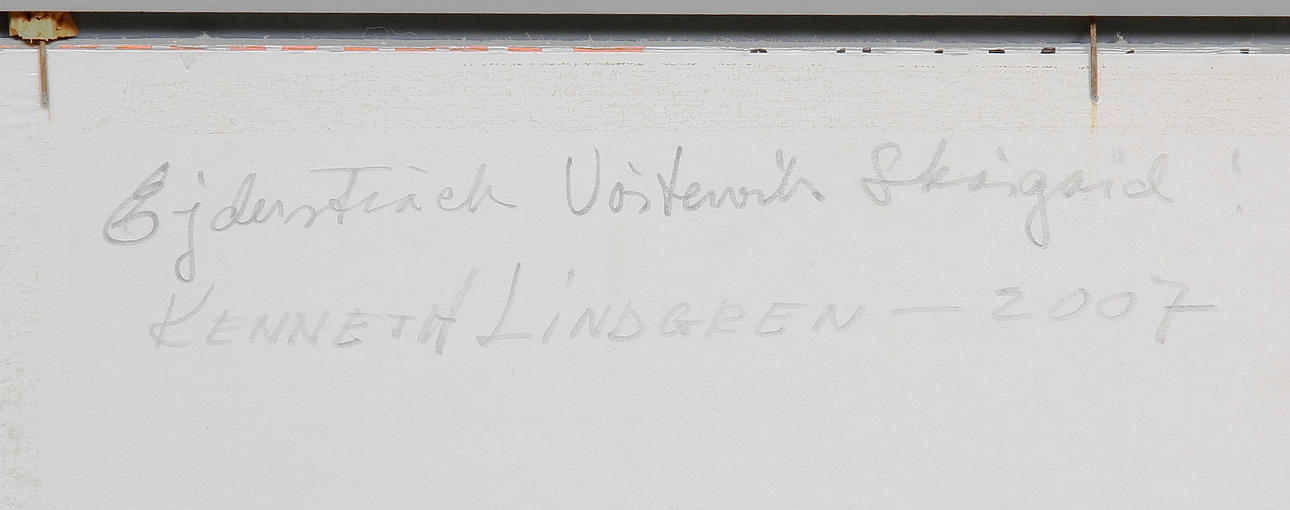 Ejdersträck Västervik Skärgård !
KENNETH LiNDGREN — 2007